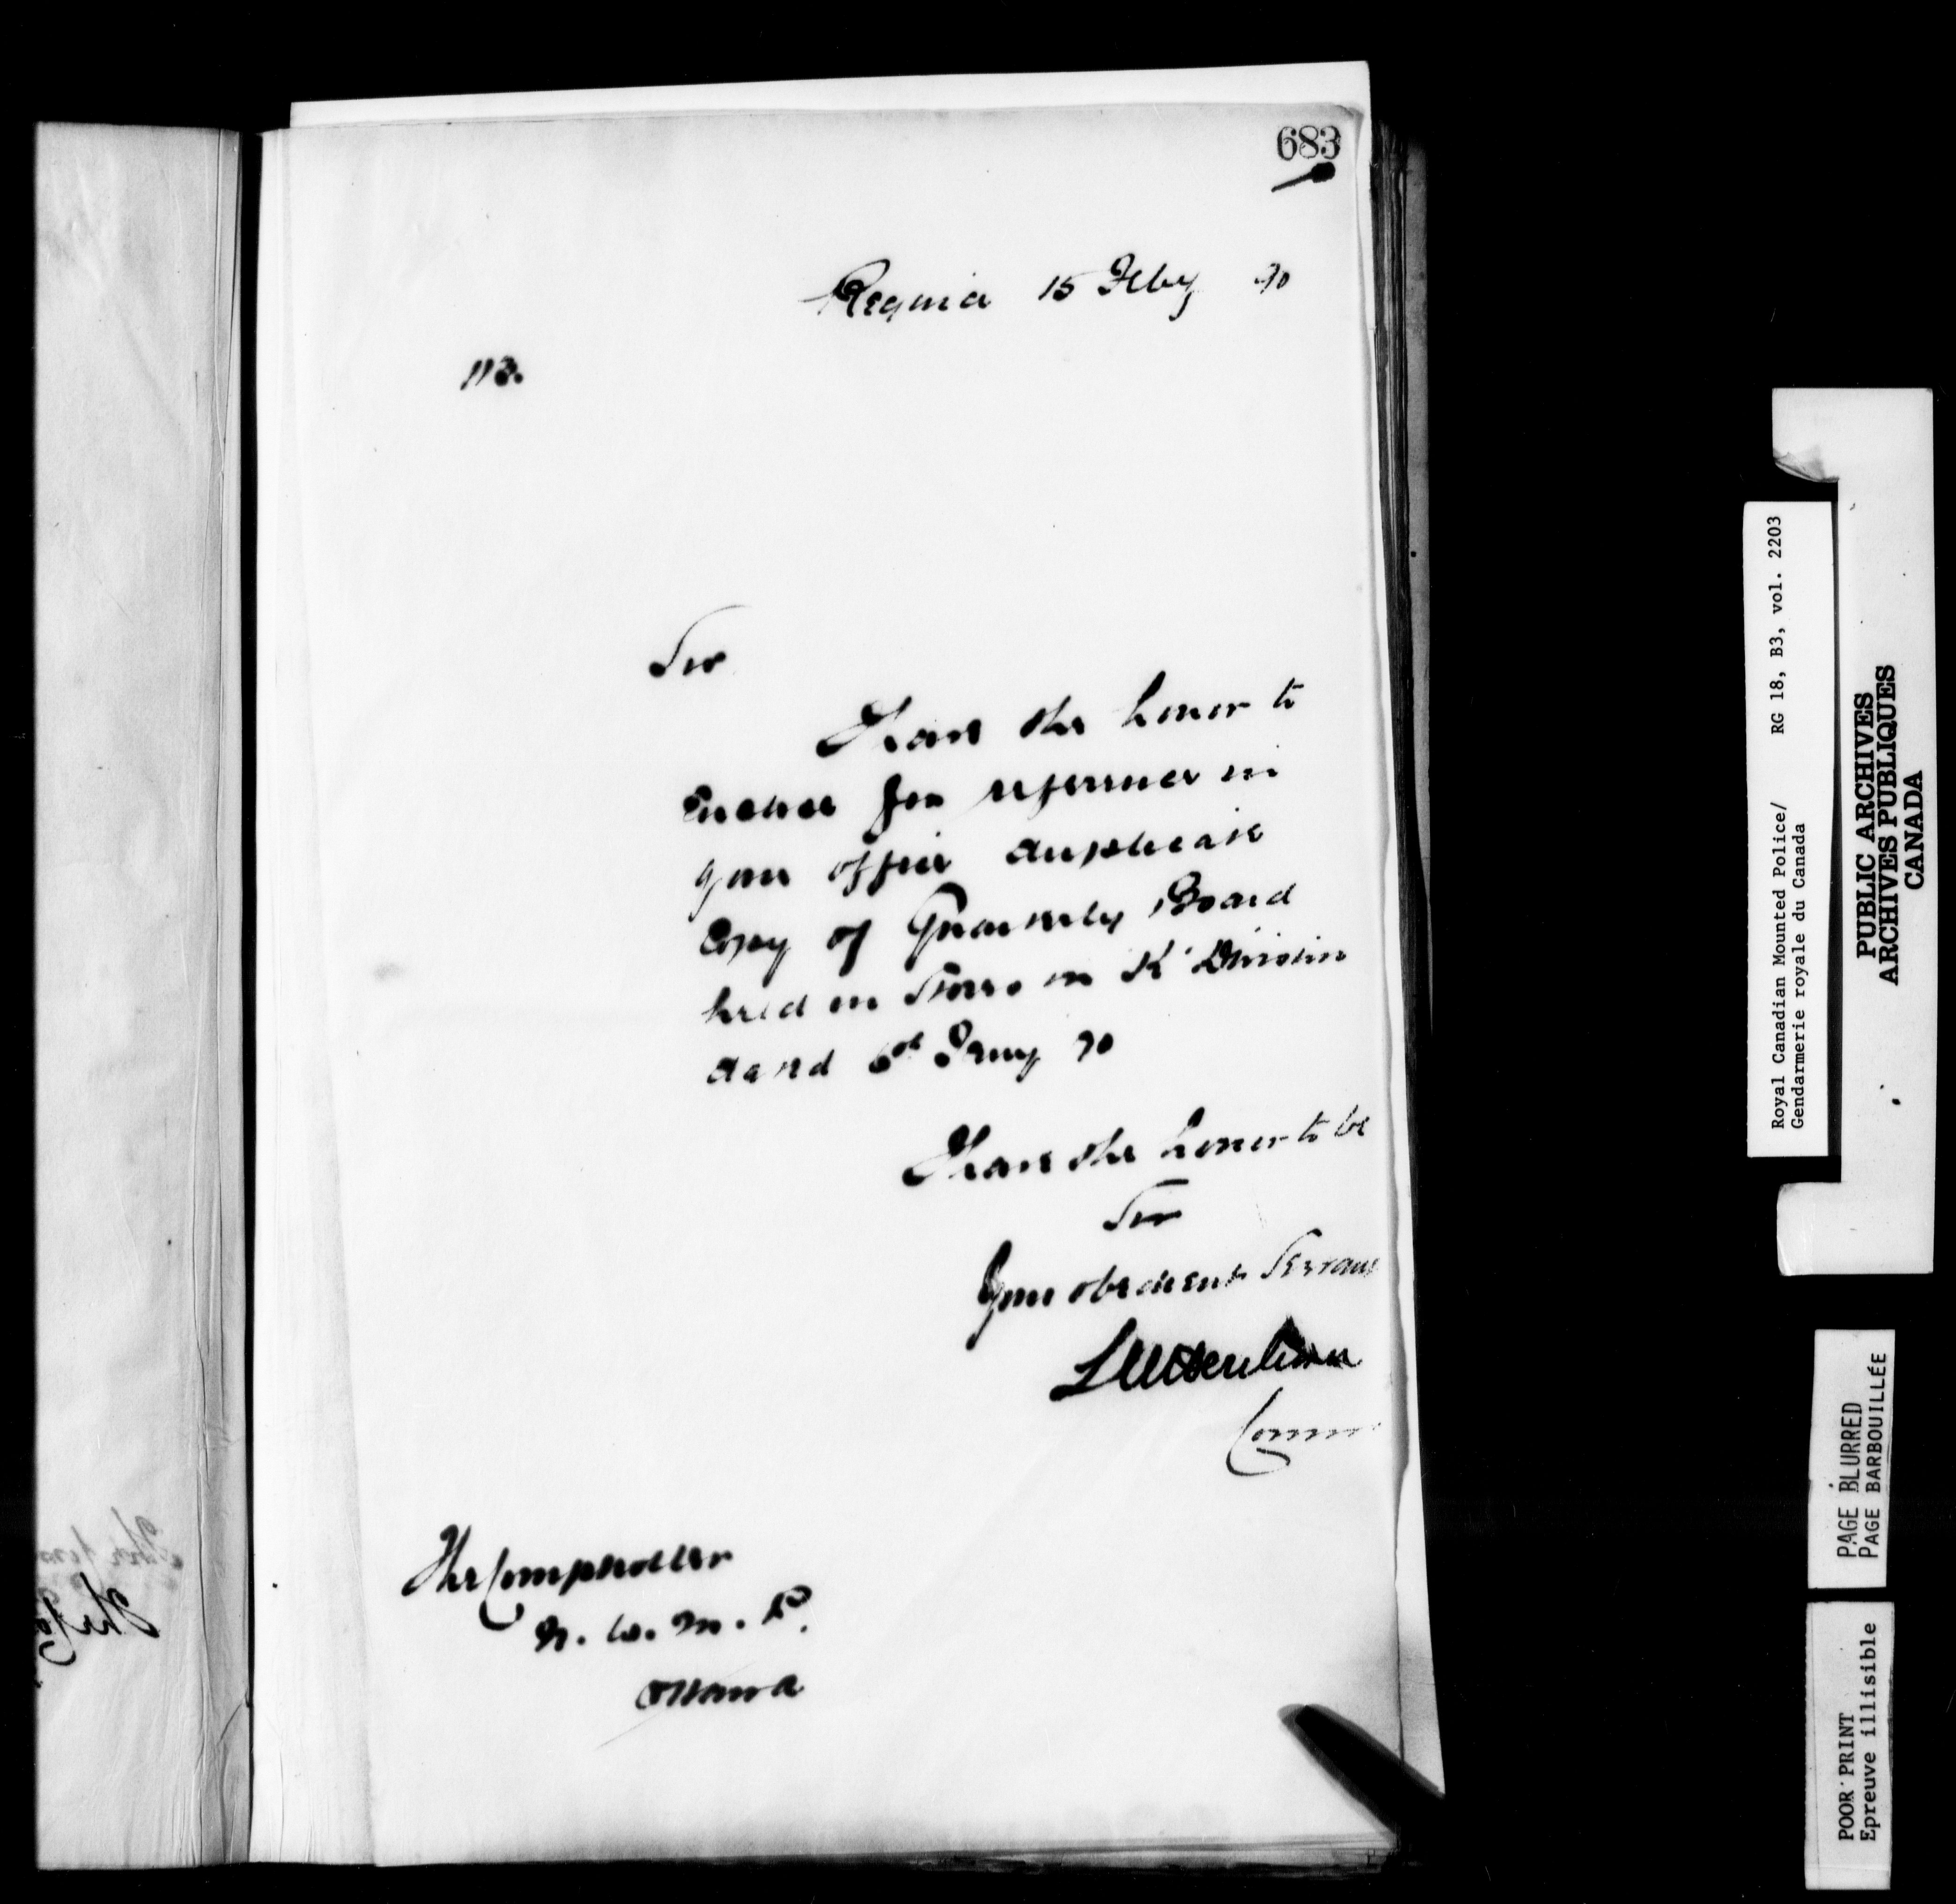 683
Regina 15 Feby 90
113.
Sir
I have the honor to
enclose for reference in
your office duplicate
Copy of Quarterly Board
held on Stores in 'K' Division
dated 6th Jany 90
I have the honor to be
Sir
Your obedient Servant
LWHerchmer
Commr
The Comptroller
N. W. M. P.
Ottawa
Royal Canadian Mounted Police/ RG 18, B3, vol. 2203
Gendarmerie royale du Canada
PUBLIC ARCHIVES
ARCHIVES PUBLIQUES
CANADA
PAGE BLURRED
PAGE BARBOUILLÉE
POOR PRINT
Epreuve illisible